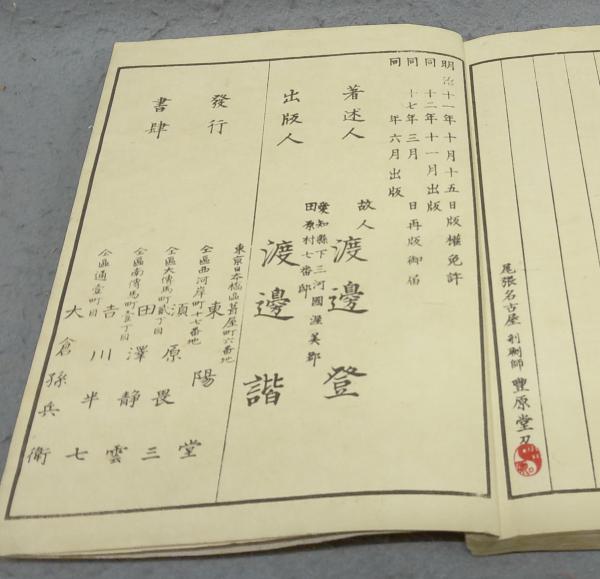 尾張名古屋 刻刷師 豐原堂刀
明治十一年十月十五日版權免許
同 十二年十一月出版
同 十七年三月 日再版御届
同 年六月出版
著述人 故人 渡邊登
愛知縣下三河國渥美郡
田原村七番邸
出版人 渡邊諧
東京日本橋區舊屋町六番地
發行
書肆
東陽堂
仝區西河岸町十七番地
須原畏三
仝區大傳馬町貳丁目
田澤静雲
仝區南傳馬町壱丁目
吉川半七
仝區通壹町目
大倉孫兵衛